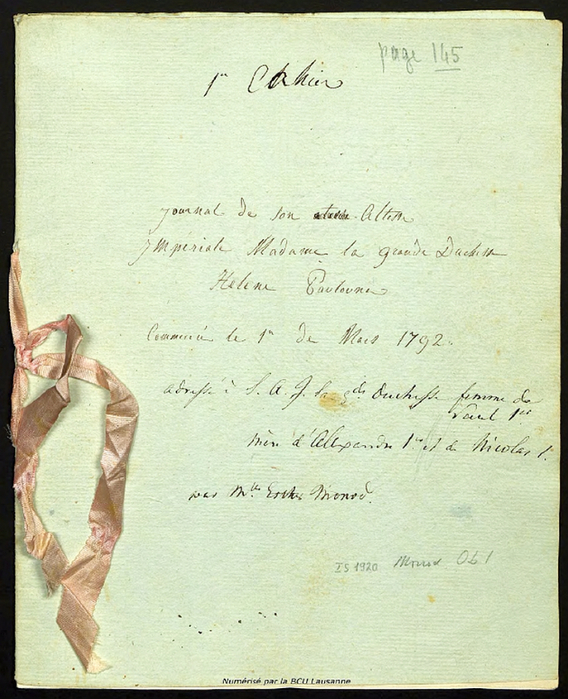 page 145
1er Cahier
journal de son Altesse
Impériale Madame la grande Duchesse
Hélene Paulovna
Commencé le 1er de Mars 1792.
adressé à S. A. J. La gde Duchesse femme de
Paul 1er
mère d'Alexandre 1er et de Nicolas 1.
par Mlle Esther Monod.
IS 1920 Monod Ob 1
Numérisé par la BCU Lausanne